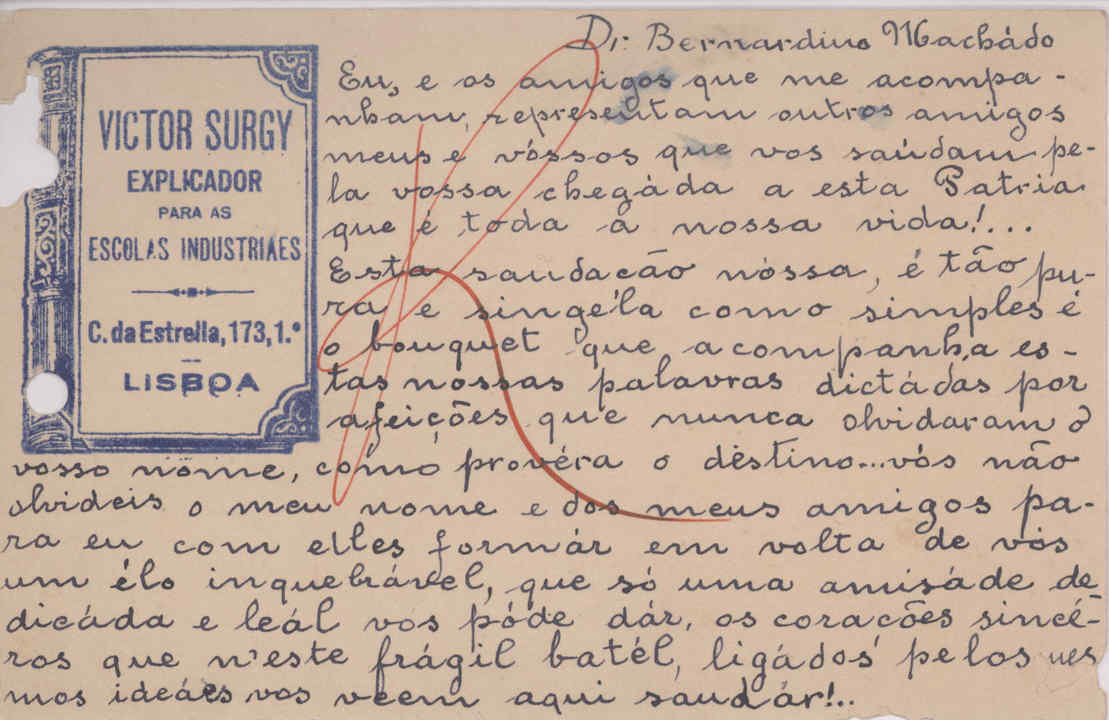 VICTOR SURGY
EXPLICADOR
PARA AS
ESCOLAS INDUSTRIAES
C. da Estrella, 173, 1.º
LISBOA
Dr. Bernardino Machádo
Eu, e os amigos que me acompa-
nham, representam outros amigos
meus e vóssos que vos saúdam pe-
la vossa chegáda a esta Patria
que é toda a nossa vida!...
Esta saudacão nossa, é tão pu-
ra e singéla como simples é
o bouquet que acompanha es-
tas nossas palavras dictádas por
afeições que nunca olvidaram o
vosso nome, como provéra o destino...vós não
olvideis o meu nome e dos meus amigos pa-
ra eu com elles formár em volta de vós
um élo inquebrável, que só uma amisáde de
dicáda e leál vos póde dár, os coracões sincé-
ros que n'este frágil batél, ligádos pelos mes
mos ideáes vos veem aqui saudár!..